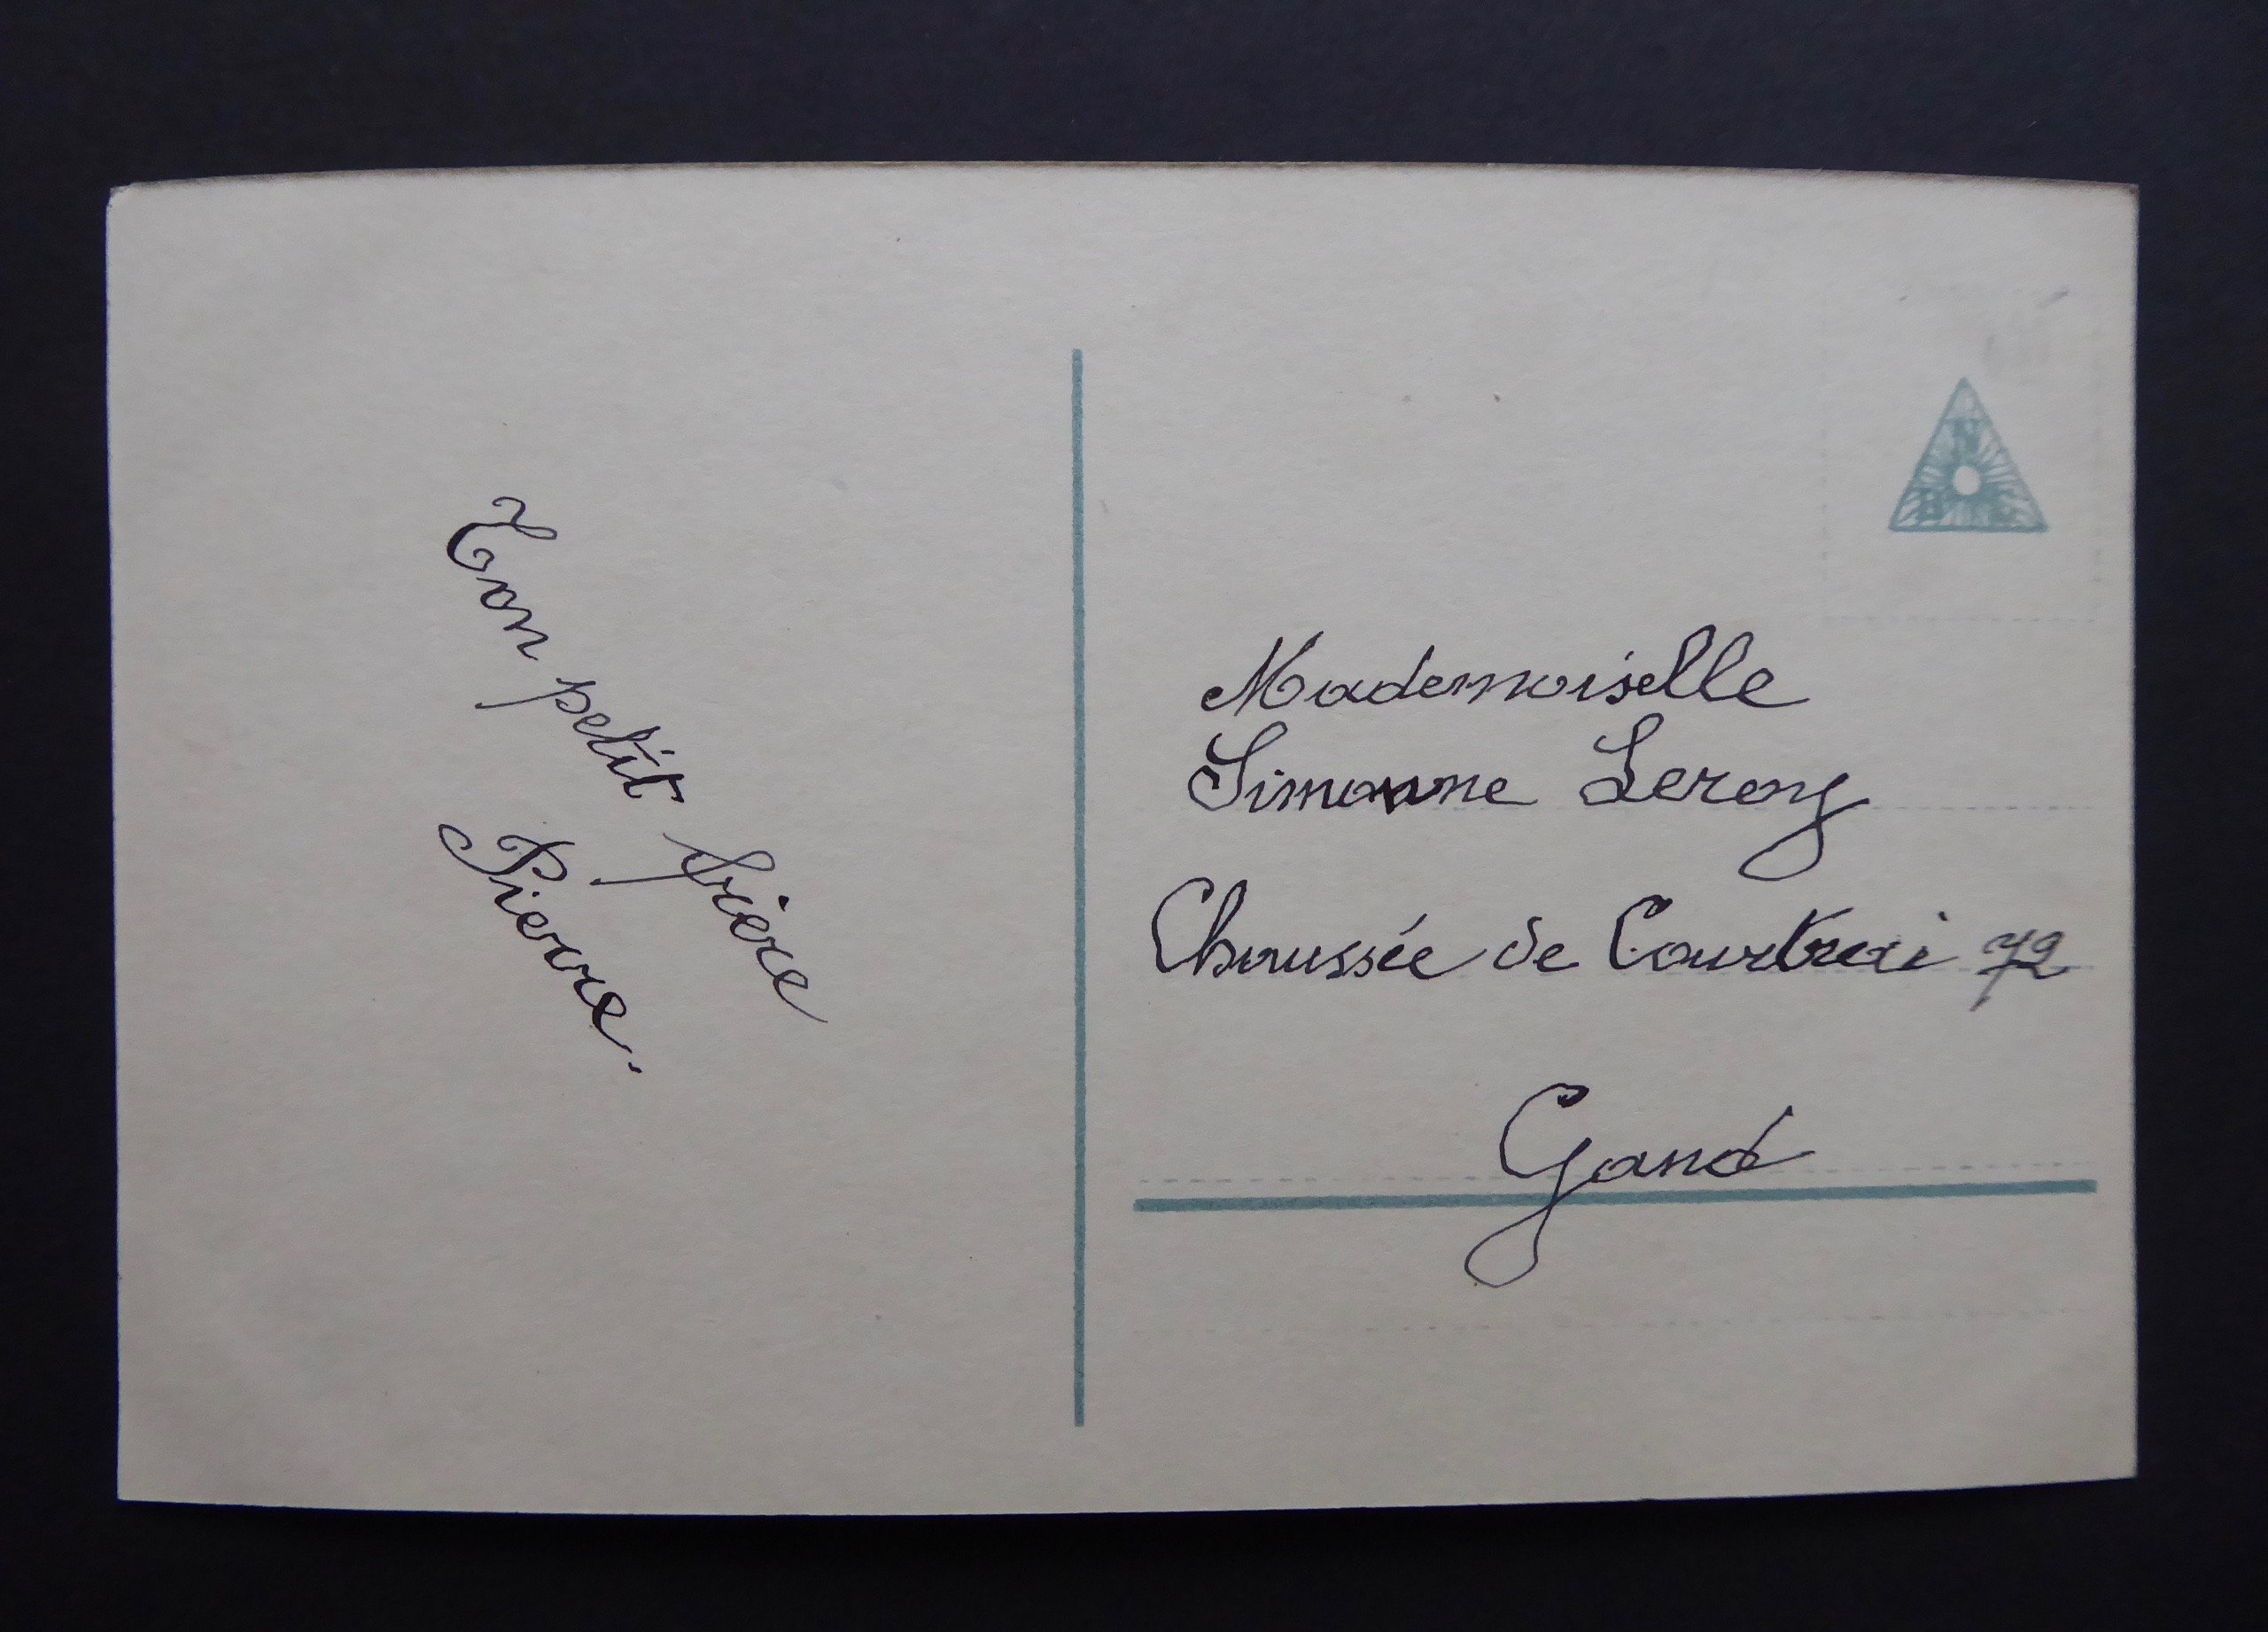 Ton petit frère
Pierre.
Mademoiselle
Simonne Leroy
Chaussée de Courtrai 72
Gand